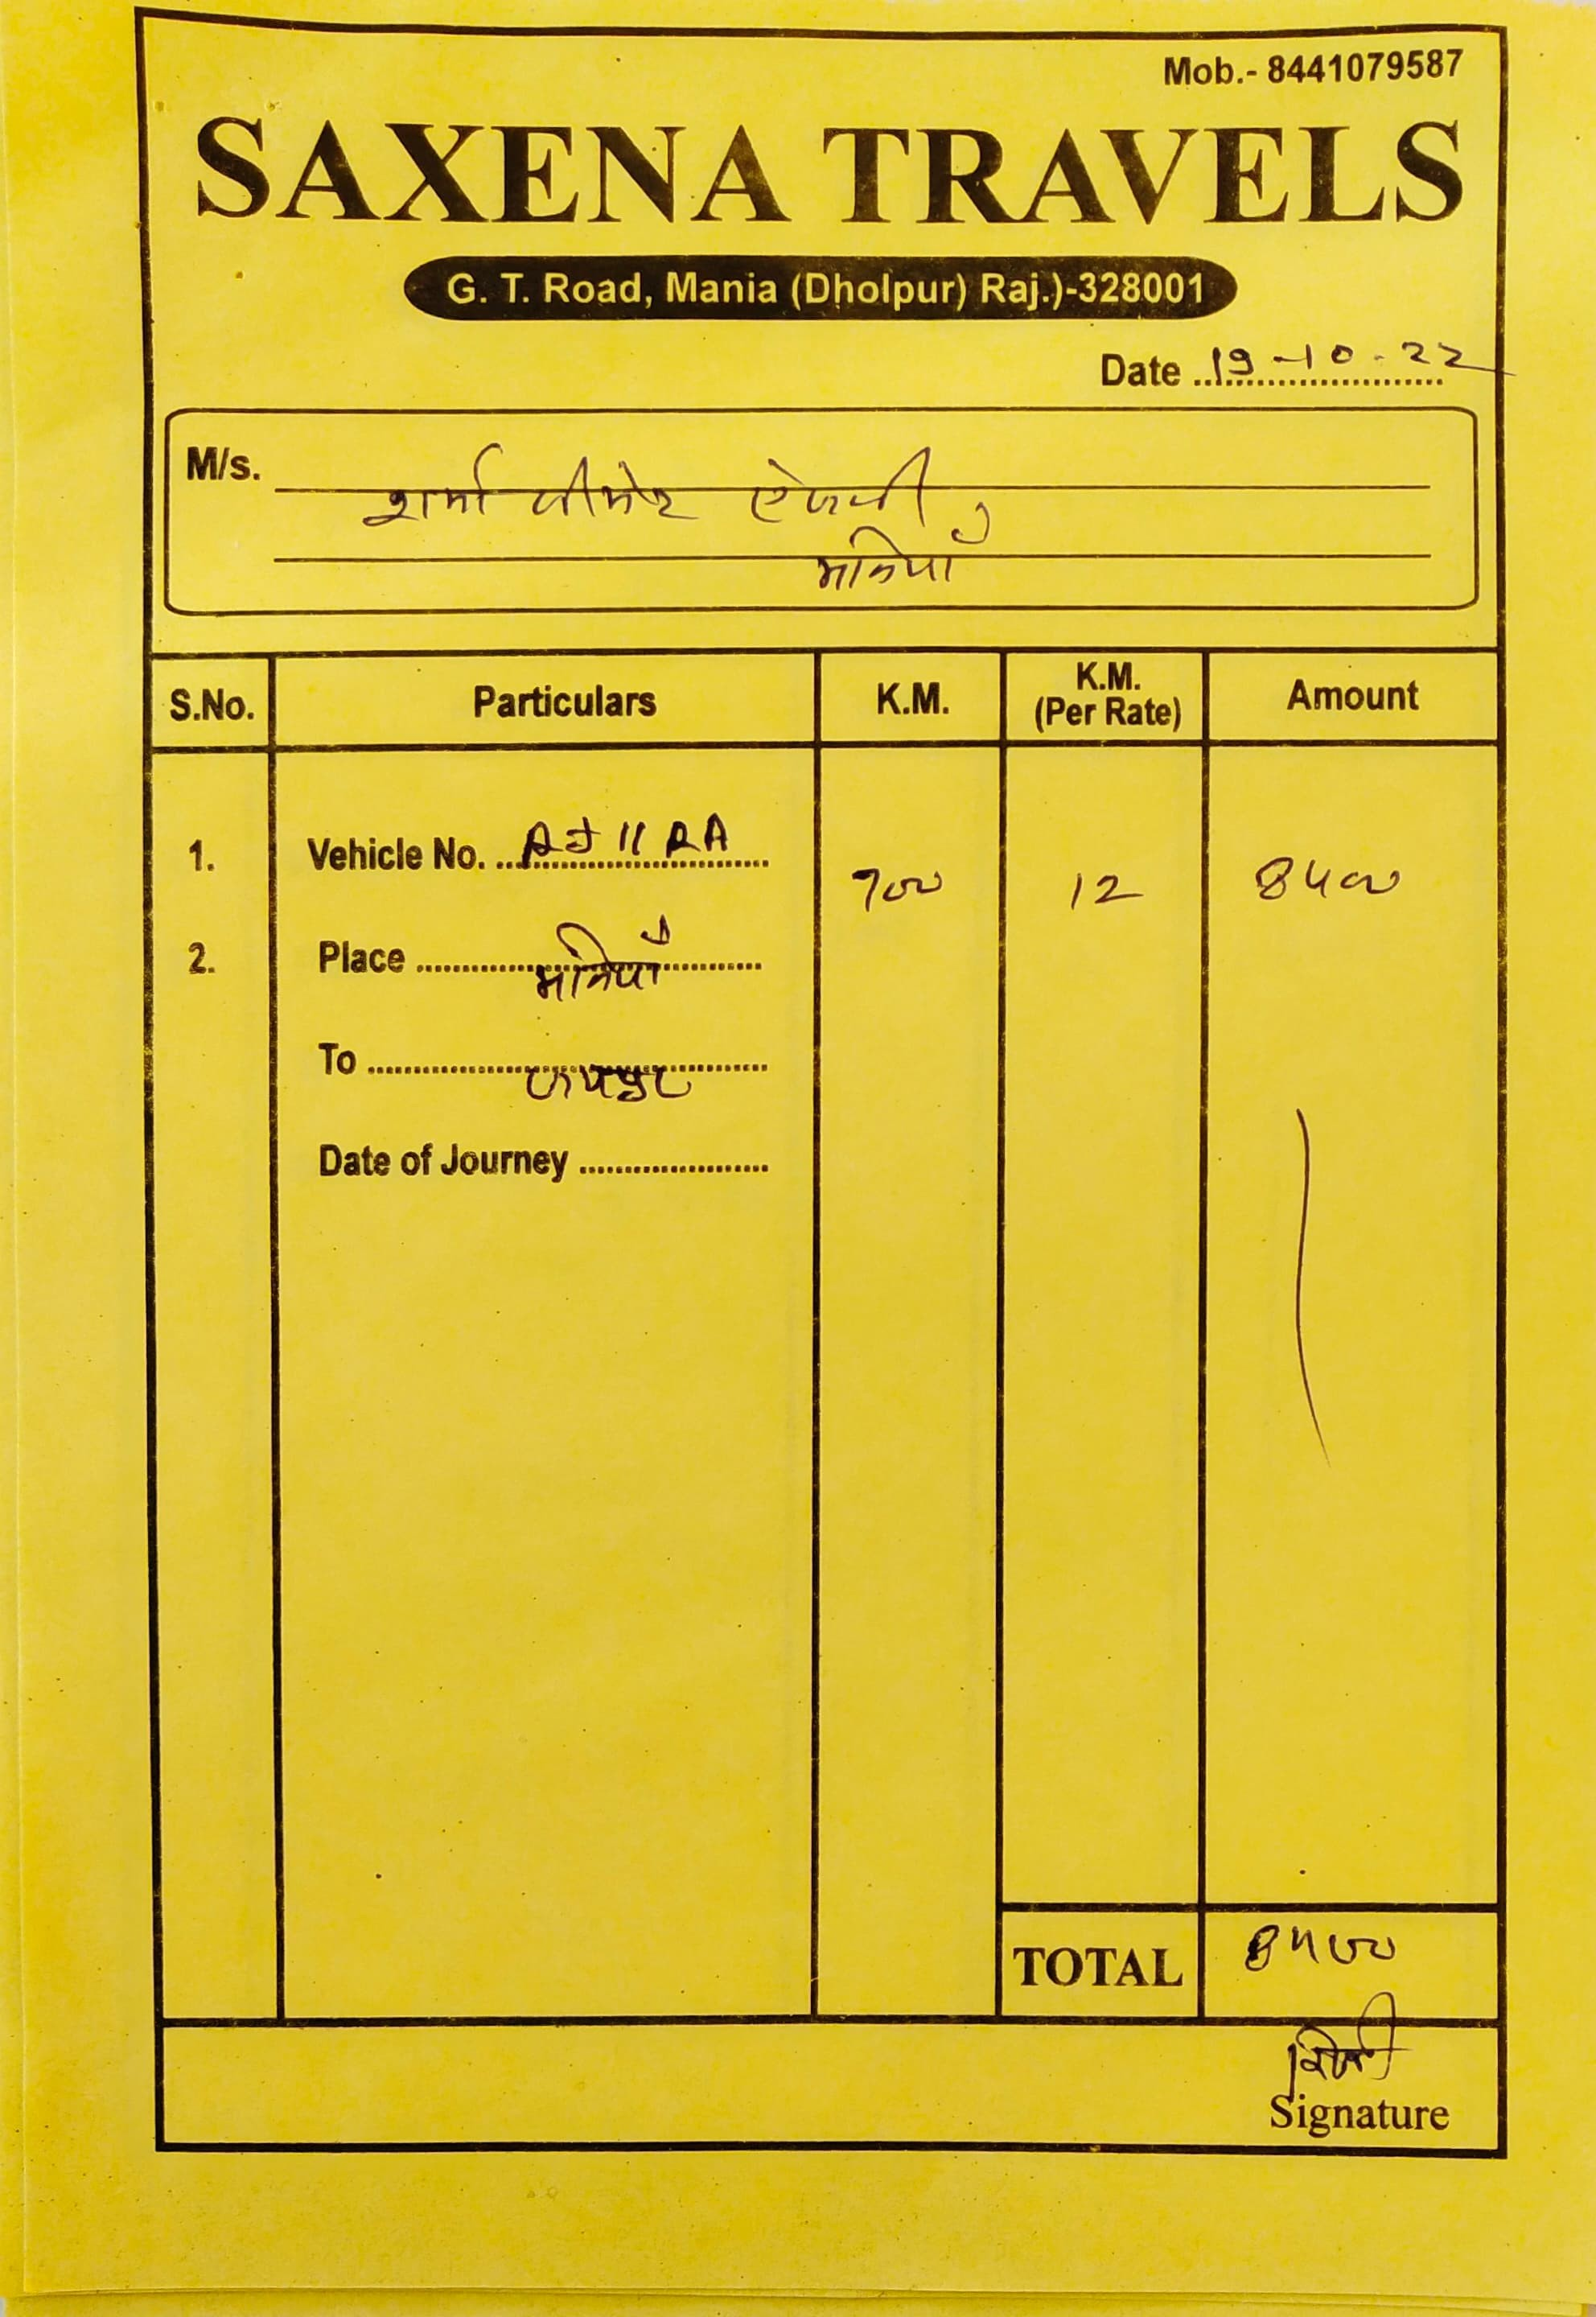 Mob.- 8441079587
SAXENA TRAVELS
G. T. Road, Mania (Dholpur) Raj.)-328001
Date 19-10-22
M/s. शर्मा सीमेंट ऐजेन्सी,
मनियाँ
S.No. Particulars K.M. K.M. (Per Rate) Amount
1. Vehicle No. RJ 11 RA 700 12 8400
2. Place मनियाँ
To जयपुर
Date of Journey
TOTAL 8400
Signature